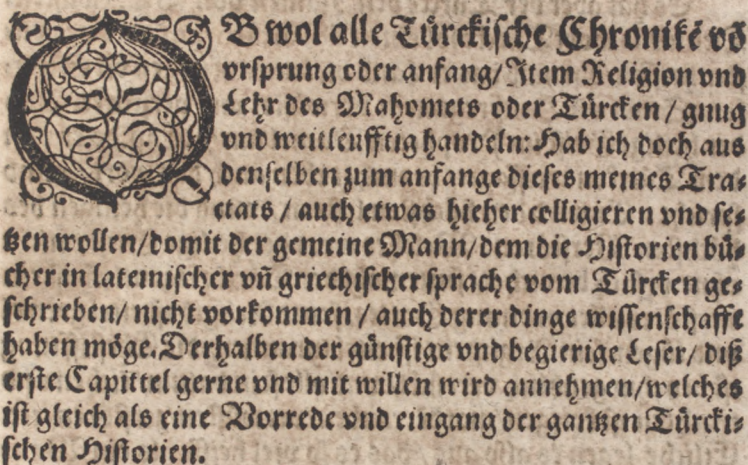 OB wol alle Tuͤrckiſche Chronikẽ võ
vrſprung oder anfang/ Item Religion vnd
Lehr des Mahomets oder Tuͤrcken / gnug
vnd weitleufftig handeln: Hab ich doch aus
denſelben zum anfange dieſes meines Tra⸗
ctats / auch etwas hieher colligieren vnd ſe⸗
tzen wollen/domit der gemeine Mann/dem die Hiſtorien buͤ⸗
cher in lateiniſcher vñ griechiſcher ſprache vom Tuͤrcken ge⸗
ſchrieben/ nicht vorkommen / auch derer dinge wiſſenſchafft
haben moͤge. Derhalben der guͤnſtige vnd begierige Leſer/ diß
erſte Capittel gerne vnd mit willen wird annehmen/welches
iſt gleich als eine Vorrede vnd eingang der gantzen Tuͤrcki⸗
ſchen Hiſtorien.